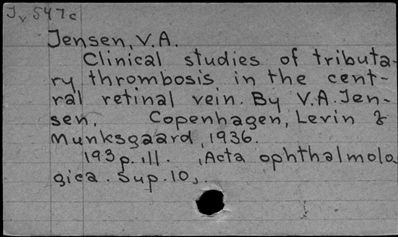 Jv547c
Jensen, V.A.
Clinical studies of tributa-
ry thrombosis in the cent-
ral retinal vein. By V.A. Jen-
sen. Copenhagen, Levin &
Munksgaard, 1936.
193p. ill. (Acta ophthalmolo
gica. Sup. 10).